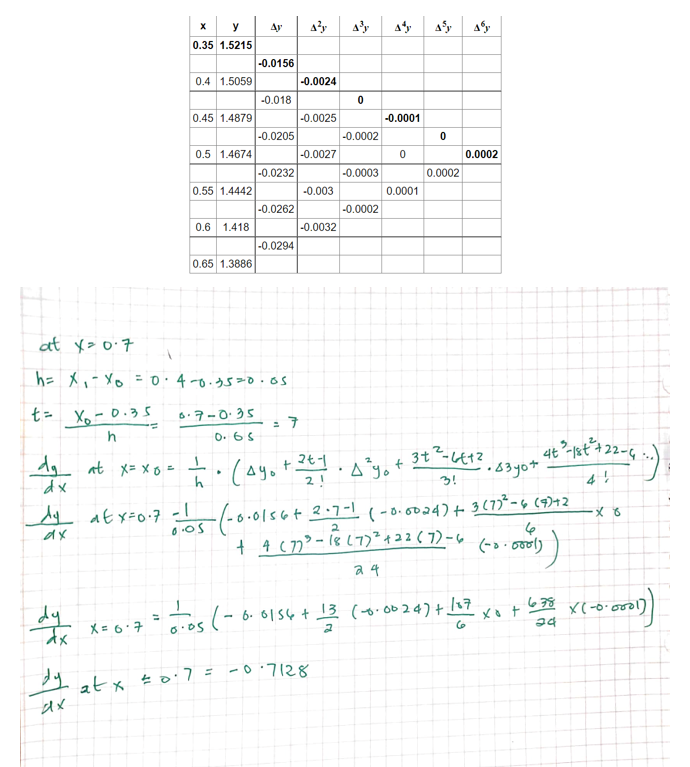 x y Δy Δ²y Δ³y Δ⁴y Δ⁵y Δ⁶y
0.35 1.5215
-0.0156
0.4 1.5059 -0.0024
-0.018 0
0.45 1.4879 -0.0025 -0.0001
-0.0205 -0.0002 0
0.5 1.4674 -0.0027 0 0.0002
-0.0232 -0.0003 0.0002
0.55 1.4442 -0.003 0.0001
-0.0262 -0.0002
0.6 1.418 -0.0032
-0.0294
0.65 1.3886
at x=0.7
h= x₁-x₀ = 0.4-0.35=0.05
t= (x₀-0.35)/h = (0.7-0.35)/0.05 = 7
dy/dx at x=x₀ = 1/h · (Δy₀ + (2t-1)/2! · Δ²y₀ + (3t²-6t+2)/3! · Δ3y₀+ (4t³-18t²+22-6)/4! ...)
dy/dx at x=0.7 -1/0.05 (-0.0156+ (2·7-1)/2 (-0.0024)+ (3(7)²-6(7)+2)/6 × 0
+ (4(7)³-18(7)²+22(7)-6)/24 (-0.0001))
dy/dx x=0.7 = 1/0.05 (-0.0156+ 13/2 (-0.0024)+ 107/6 ×0 + 638/24 ×(-0.0001))
dy/dx at x = 0.7 = -0.7128